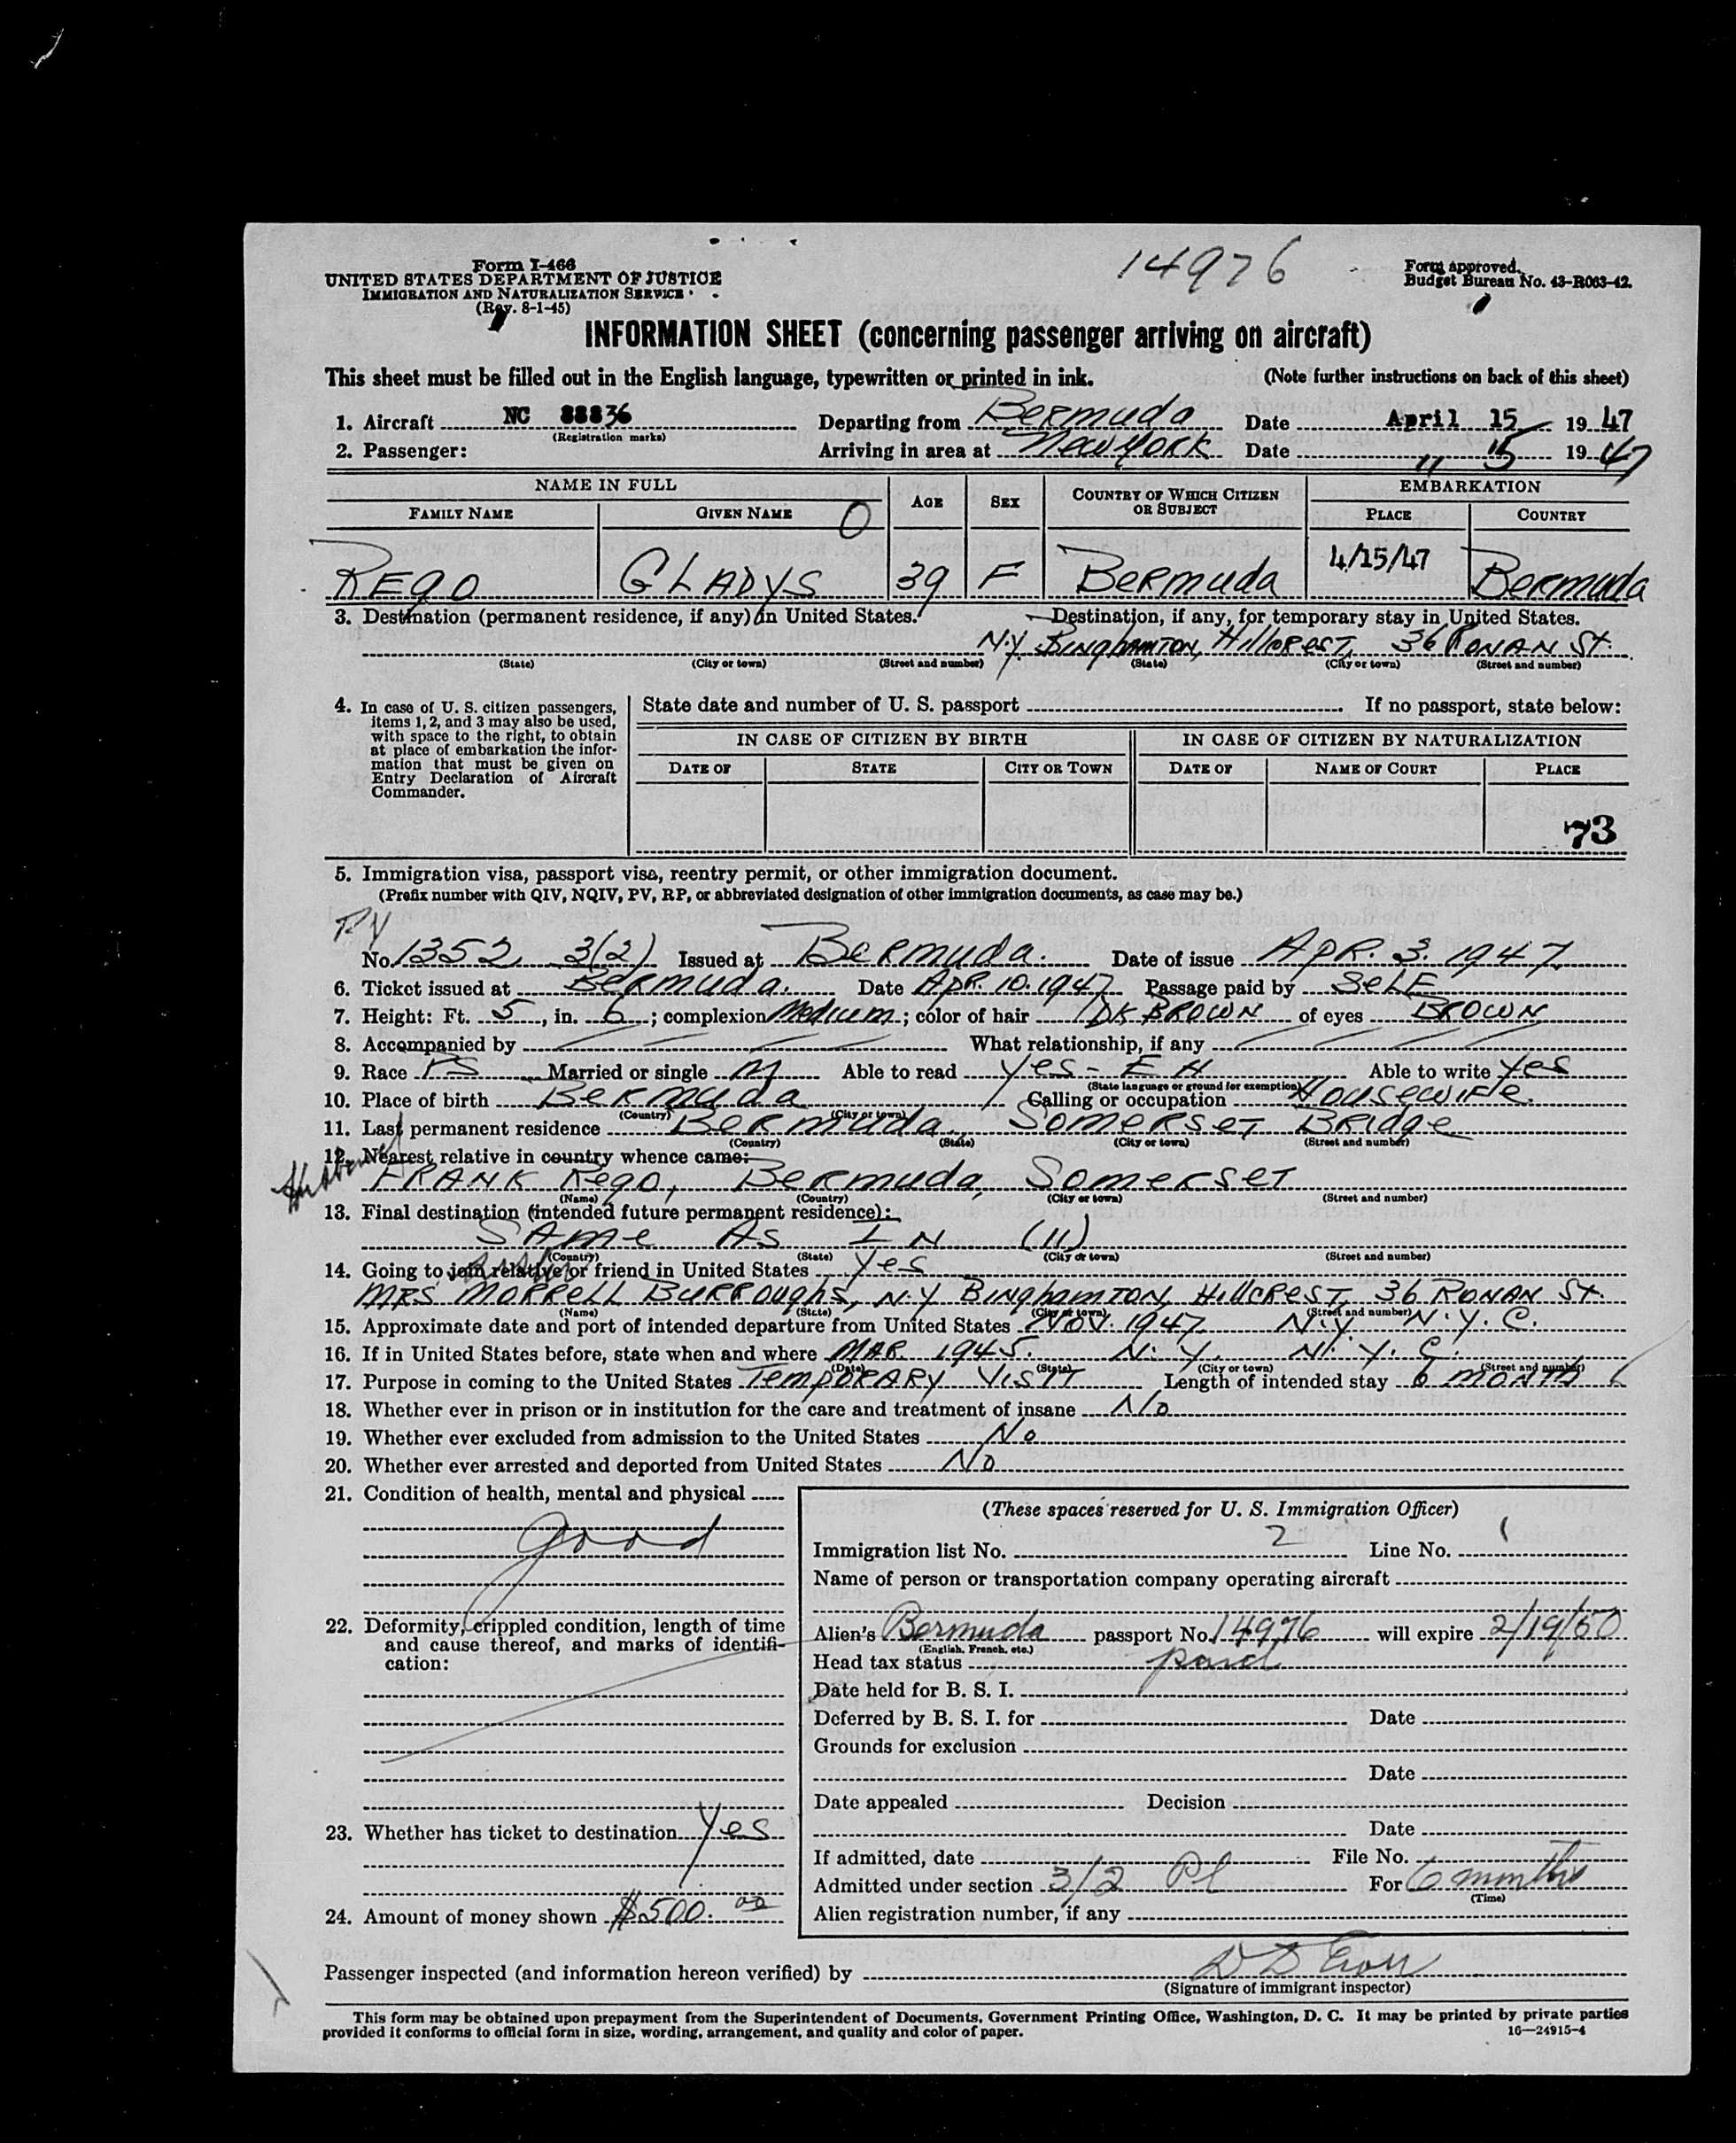 Form I-466
UNITED STATES DEPARTMENT OF JUSTICE
IMMIGRATION AND NATURALIZATION SERVICE
(Rev. 8-1-45)
14976
Form approved.
Budget Bureau No. 43-R063-42.
INFORMATION SHEET (concerning passenger arriving on aircraft)
This sheet must be filled out in the English language, typewritten or printed in ink. (Note further instructions on back of this sheet)
1. Aircraft NC 88836 Departing from Bermuda Date April 15 1947
(Registration marks)
2. Passenger: Arriving in area at New York Date " 15 1947
NAME IN FULL AGE SEX COUNTRY OF WHICH CITIZEN OR SUBJECT EMBARKATION
FAMILY NAME GIVEN NAME O PLACE COUNTRY
REGO GLADYS 39 F BERMUDA 4/15/47 BERMUDA
3. Destination (permanent residence, if any) in United States. Destination, if any, for temporary stay in United States.
N.Y. BINGHAMTON, HILLCREST, 36 RONAN St.
(State) (City or town) (Street and number) (State) (City or town) (Street and number)
4. In case of U. S. citizen passengers, items 1, 2, and 3 may also be used, with space to the right, to obtain at place of embarkation the information that must be given on Entry Declaration of Aircraft Commander.
State date and number of U. S. passport If no passport, state below:
IN CASE OF CITIZEN BY BIRTH IN CASE OF CITIZEN BY NATURALIZATION
DATE OF STATE CITY OR TOWN DATE OF NAME OF COURT PLACE
73
5. Immigration visa, passport visa, reentry permit, or other immigration document.
(Prefix number with QIV, NQIV, PV, RP, or abbreviated designation of other immigration documents, as case may be.)
PV
No. 1352 3(2) Issued at BERMUDA. Date of issue APR. 3. 1947
6. Ticket issued at BERMUDA. Date APR. 10. 1947 Passage paid by SELF
7. Height: Ft. 5, in. 6; complexion MEDIUM; color of hair DK BROWN of eyes BROWN
8. Accompanied by What relationship, if any
9. Race Married or single M Able to read Yes - Able to write Yes
(State language or ground for exemption)
10. Place of birth BERMUDA Calling or occupation HOUSEWIFE.
(Country) (City or town)
11. Last permanent residence BERMUDA, SOMERSET BRIDGE
(Country) (State) (City or town) (Street and number)
12. Nearest relative in country whence came:
Husband
FRANK REGO, BERMUDA, SOMERSET
(Name) (Country) (City or town) (Street and number)
13. Final destination (intended future permanent residence):
SAME AS IN (11)
(Country) (State) (City or town) (Street and number)
14. Going to join relative or friend in United States Yes
MRS MORRELL BURROUGHS, N.Y BINGHAMTON, HILLCREST, 36 RONAN St.
(Name) (State) (City or town) (Street and number)
15. Approximate date and port of intended departure from United States NOV. 1947 N.Y. N.Y.C.
16. If in United States before, state when and where MAR. 1945. N.Y. N.Y.C.
(Date) (State) (City or town) (Street and number)
17. Purpose in coming to the United States TEMPORARY VISIT Length of intended stay 6 MONTHS
18. Whether ever in prison or in institution for the care and treatment of insane No
19. Whether ever excluded from admission to the United States No
20. Whether ever arrested and deported from United States No
21. Condition of health, mental and physical
good
22. Deformity, crippled condition, length of time and cause thereof, and marks of identification:
23. Whether has ticket to destination Yes
24. Amount of money shown $500.00
(These spaces reserved for U. S. Immigration Officer)
Immigration list No. 2 Line No. 1
Name of person or transportation company operating aircraft
Alien's Bermuda passport No. 14976 will expire 2/19/50
(English, French, etc.)
Head tax status paid
Date held for B. S. I.
Deferred by B. S. I. for Date
Grounds for exclusion
Date
Date appealed Decision
Date
If admitted, date File No.
Admitted under section 3/2 Pl For 6 months
(Time)
Alien registration number, if any
Passenger inspected (and information hereon verified) by
(Signature of immigrant inspector)
This form may be obtained upon prepayment from the Superintendent of Documents, Government Printing Office, Washington, D. C. It may be printed by private parties
provided it conforms to official form in size, wording, arrangement, and quality and color of paper. 16—24915-4